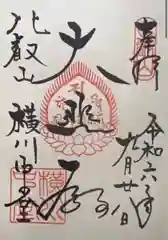 奉拝
令和六年
月廿
大悲殿
比叡山
横川中堂